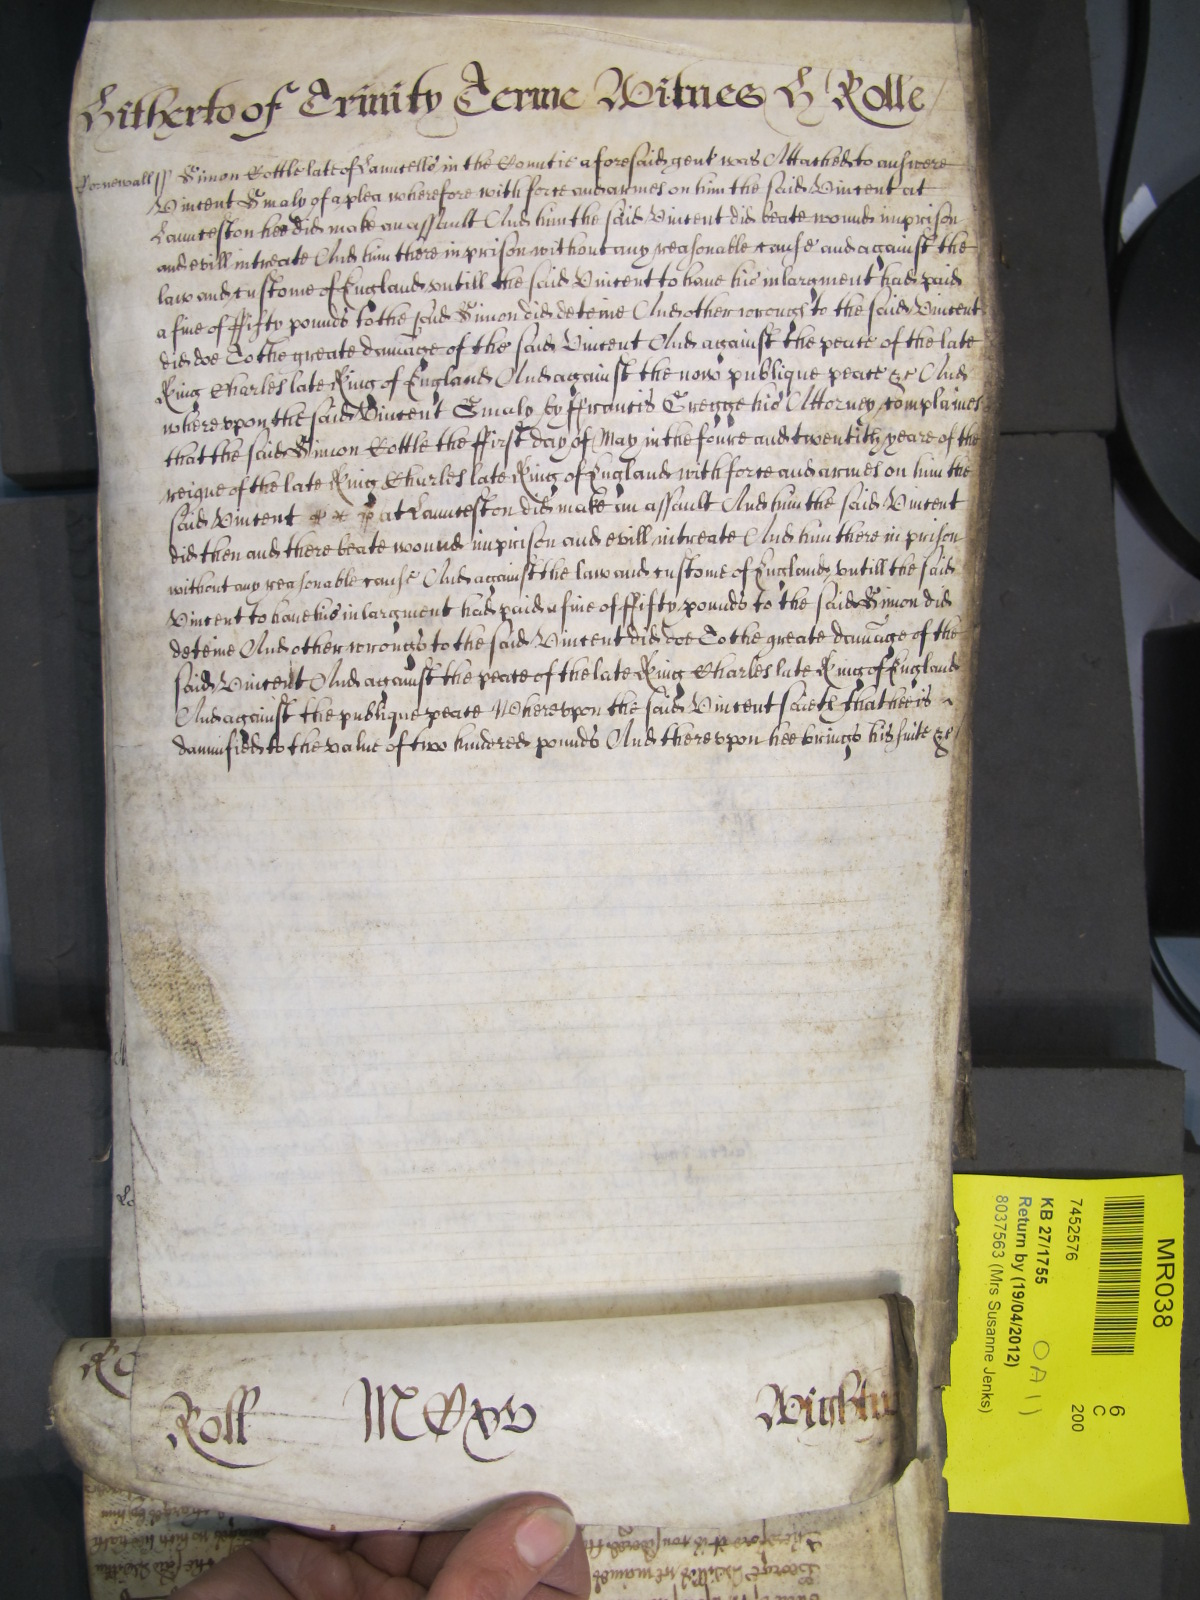 Hitherto of Trinity Terme Witnes H Rolle
Cornewall ss Simon Cottle late of Launcells in the Countie aforesaid gent was Attached to answere
Vincent Smaly of a plea wherefore with force and armes on him the said Vincent at
Launceston hee did make an assault And him the said Vincent did beate wound imprison
and evill intreate And him there in prison without any reasonable cause and against the
law and custome of England untill the said Vincent to have his inlargment had paid
a fine of ffifty pounds to the said Simon did deteine And other wrongs to the said Vincent
did doe To the greate damage of the said Vincent And against the peace of the late
King Charles late King of England And against the now publique peace &c And
whereupon the said Vincent Smaly by ffrancis Gregge his Attorney complaines
that the said Simon Cottle the ffirst day of May in the foure and twentith yeare of the
reigne of the late King Charles late King of England with force and armes on him the
said Vincent at Launceston did make an assault And him the said Vincent
did then and there beate wound imprison and evill intreate And him there in prison
without any reasonable cause And against the law and custome of England untill the said
Vincent to have his inlargment had paid a fine of ffifty pounds to the said Simon did
deteine And other wrongs to the said Vincent did doe To the greate damage of the
said Vincent And against the peace of the late King Charles late King of England
And against the publique peace Whereupon the said Vincent saieth that hee is
damnified to the value of two hundered pounds And thereupon hee brings his suite &c
Roll MDxv
MR038
6
C
200
7452576
KB 27/1755
Return by (19/04/2012)
8037563 (Mrs Susanne Jenks)